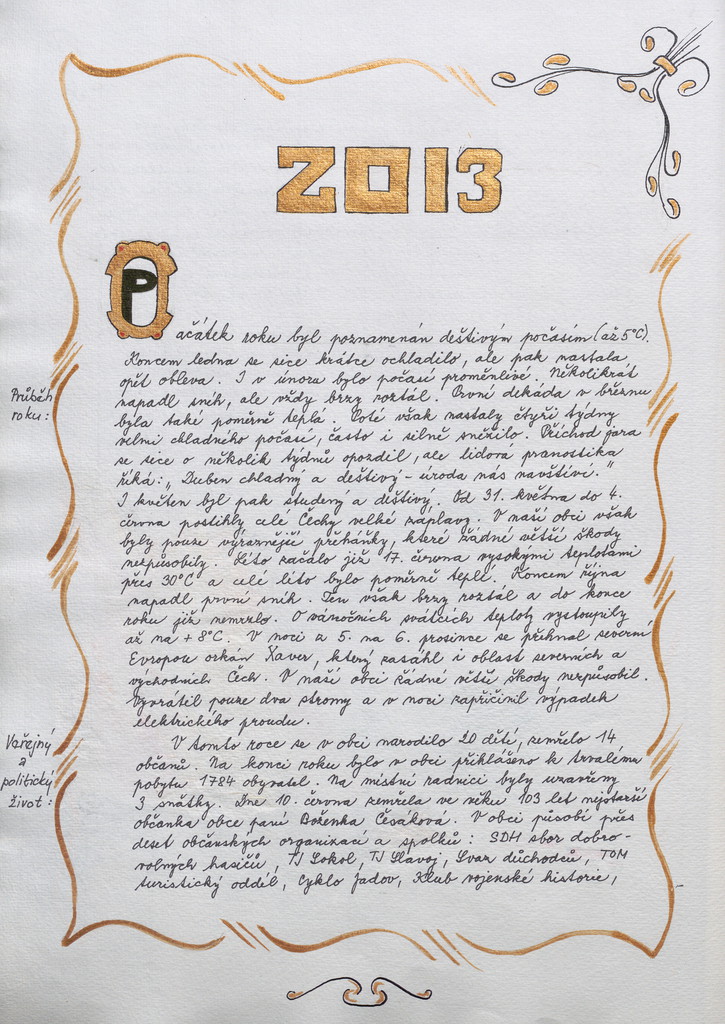 2013
Počátek roku byl poznamenán deštivým počasím (až 5°C).
Koncem ledna se sice krátce ochladilo, ale pak nastala
opět obleva. I v únoru bylo počasí proměnlivé. Několikrát
Průběh
roku:
napadl sníh, ale vždy brzy roztál. První dekáda v březnu
byla také poměrně teplá. Poté však nastaly čtyři týdny
velmi chladného počasí, často i silně sněžilo. Příchod jara
se sice o několik týdnů opozdil, ale lidová pranostika
říká: „Duben chladný a deštivý - úroda nás navštíví."
I květen byl pak studený a deštivý. Od 31. května do 4.
června postihly celé Čechy velké záplavy. V naší obci však
byly pouze výraznější přeháňky, které žádné větší škody
nezpůsobily. Léto začalo již 17. června vysokými teplotami
přes 30°C a celé léto bylo poměrně teplé. Koncem října
napadl první sníh. Ten však brzy roztál a do konce
roku již nemrzlo. O vánočních svátcích teploty vystoupily
až na +8°C. V noci z 5. na 6. prosince se přehnal severní
Evropou orkán Xaver, který zasáhl i oblast severních a
východních Čech. V naší obci žádné větší škody nezpůsobil.
Vyvrátil pouze dva stromy a v noci zapříčinil výpadek
elektrického proudu.
Veřejný
a
politický
život:
V tomto roce se v obci narodilo 20 dětí, zemřelo 14
občanů. Na konci roku bylo v obci přihlášeno k trvalému
pobytu 1784 obyvatel. Na místní radnici byly uzavřeny
3 sňatky. Dne 10. června zemřela ve věku 103 let nejstarší
občanka obce paní Boženka Česáková. V obci působí přes
deset občanských organizací a spolků: SDH sbor dobro-
volných hasičů, TJ Sokol, TJ Slavoj, Svaz důchodců, TOM
turistický oddíl, Cyklo Jadov, Klub vojenské historie,